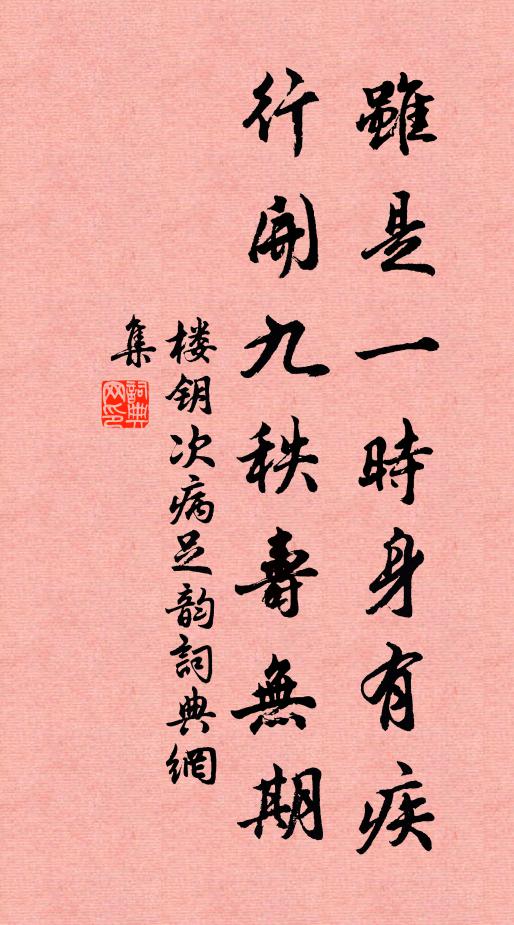 雖是一時身有疾
行開九秩壽無期
楼钥次病足韵詞典網
集
詞典網印